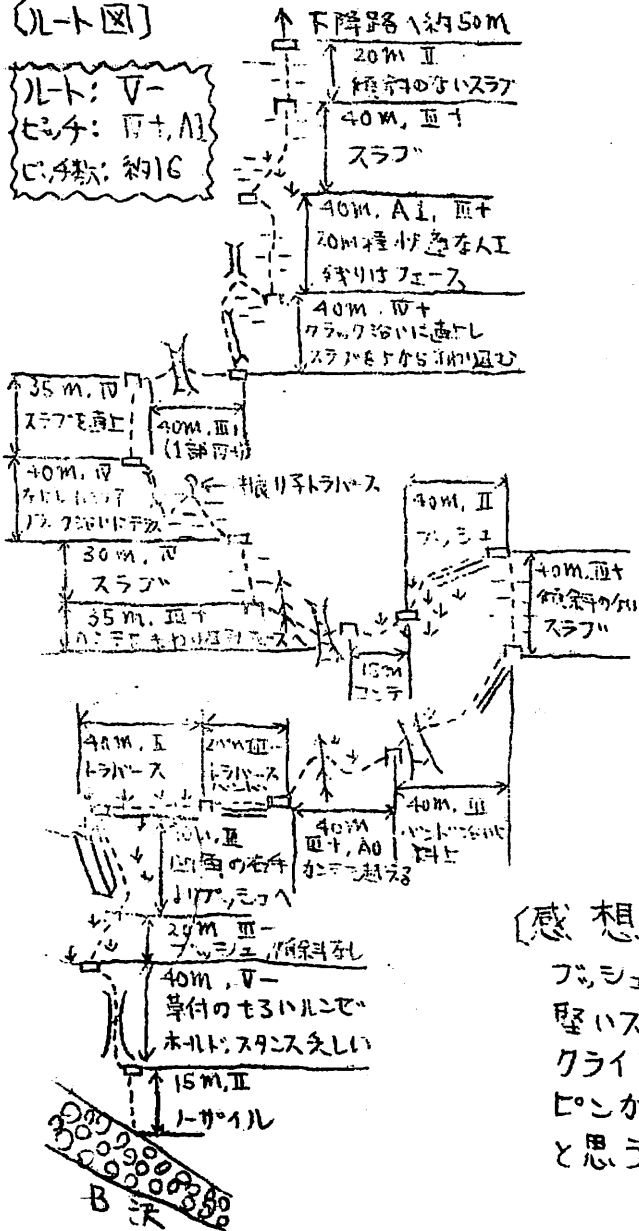 〔ルート図〕
ルート: Ⅴ−
ピッチ: Ⅳ+, A1
ピッチ数: 約16
下降路へ約50m
20m Ⅱ
傾斜のないスラブ
40m, Ⅲ+
スラブ
40m, A1, Ⅲ+
20m程 な人工
残りはフェース
40m, Ⅳ+
クラック沿いに直上し
スラブを から 込む
35m, Ⅳ
スラブを直上
40m, Ⅲ
(1部Ⅳ+)
40m, Ⅳ
沿いに
振り子トラバース
30m, Ⅳ
スラブ
35m, Ⅲ+
カンテ
15m
コンテ
40m, Ⅱ
ブッシュ
40m, Ⅲ+
傾斜のない
スラブ
40m, Ⅱ
トラバース
Ⅲ−
トラバース
バンド
40m
Ⅲ+, A0
カンテを越える
40m, Ⅲ
バンド
Ⅲ
の右手
よりブッシュへ
20m Ⅲ−
ブッシュ, 傾斜なし
40m, Ⅴ−
草付のもろいルンゼ
ホールド, スタンス乏しい
15m, Ⅱ
ノーザイル
B 沢
〔感 想
ブッシュ
堅いス
クライ
ピンが
と思う